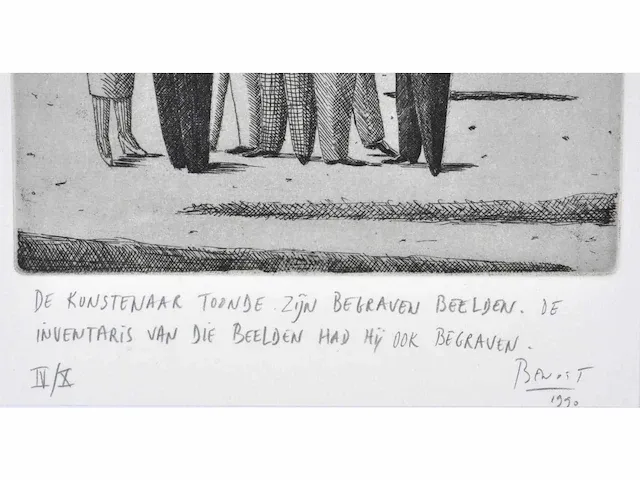 DE KUNSTENAAR TOONDE ZIJN BEGRAVEN BEELDEN. DE
INVENTARIS VAN DIE BEELDEN HAD HIJ OOK BEGRAVEN.
IV/X
BENOIT
1990